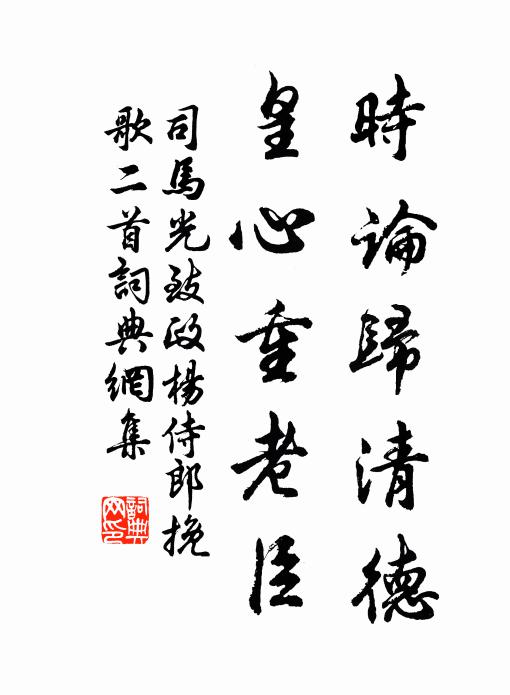 時論歸清德
皇心重老臣
司馬光致政楊侍郎挽
歌二首詞典網集
詞典
网印